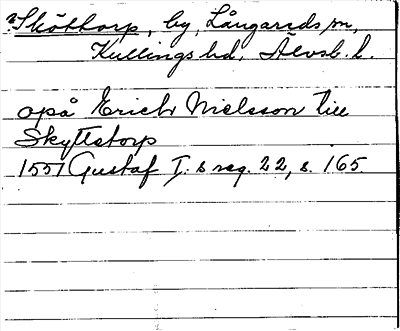 ?Sköttorp, by, Långareds sn,
Kullings hd, Älvsb. l.
opå Erich Nielsson till
Skyttetorp
1551 Gustaf I:s reg. 22, s. 165.